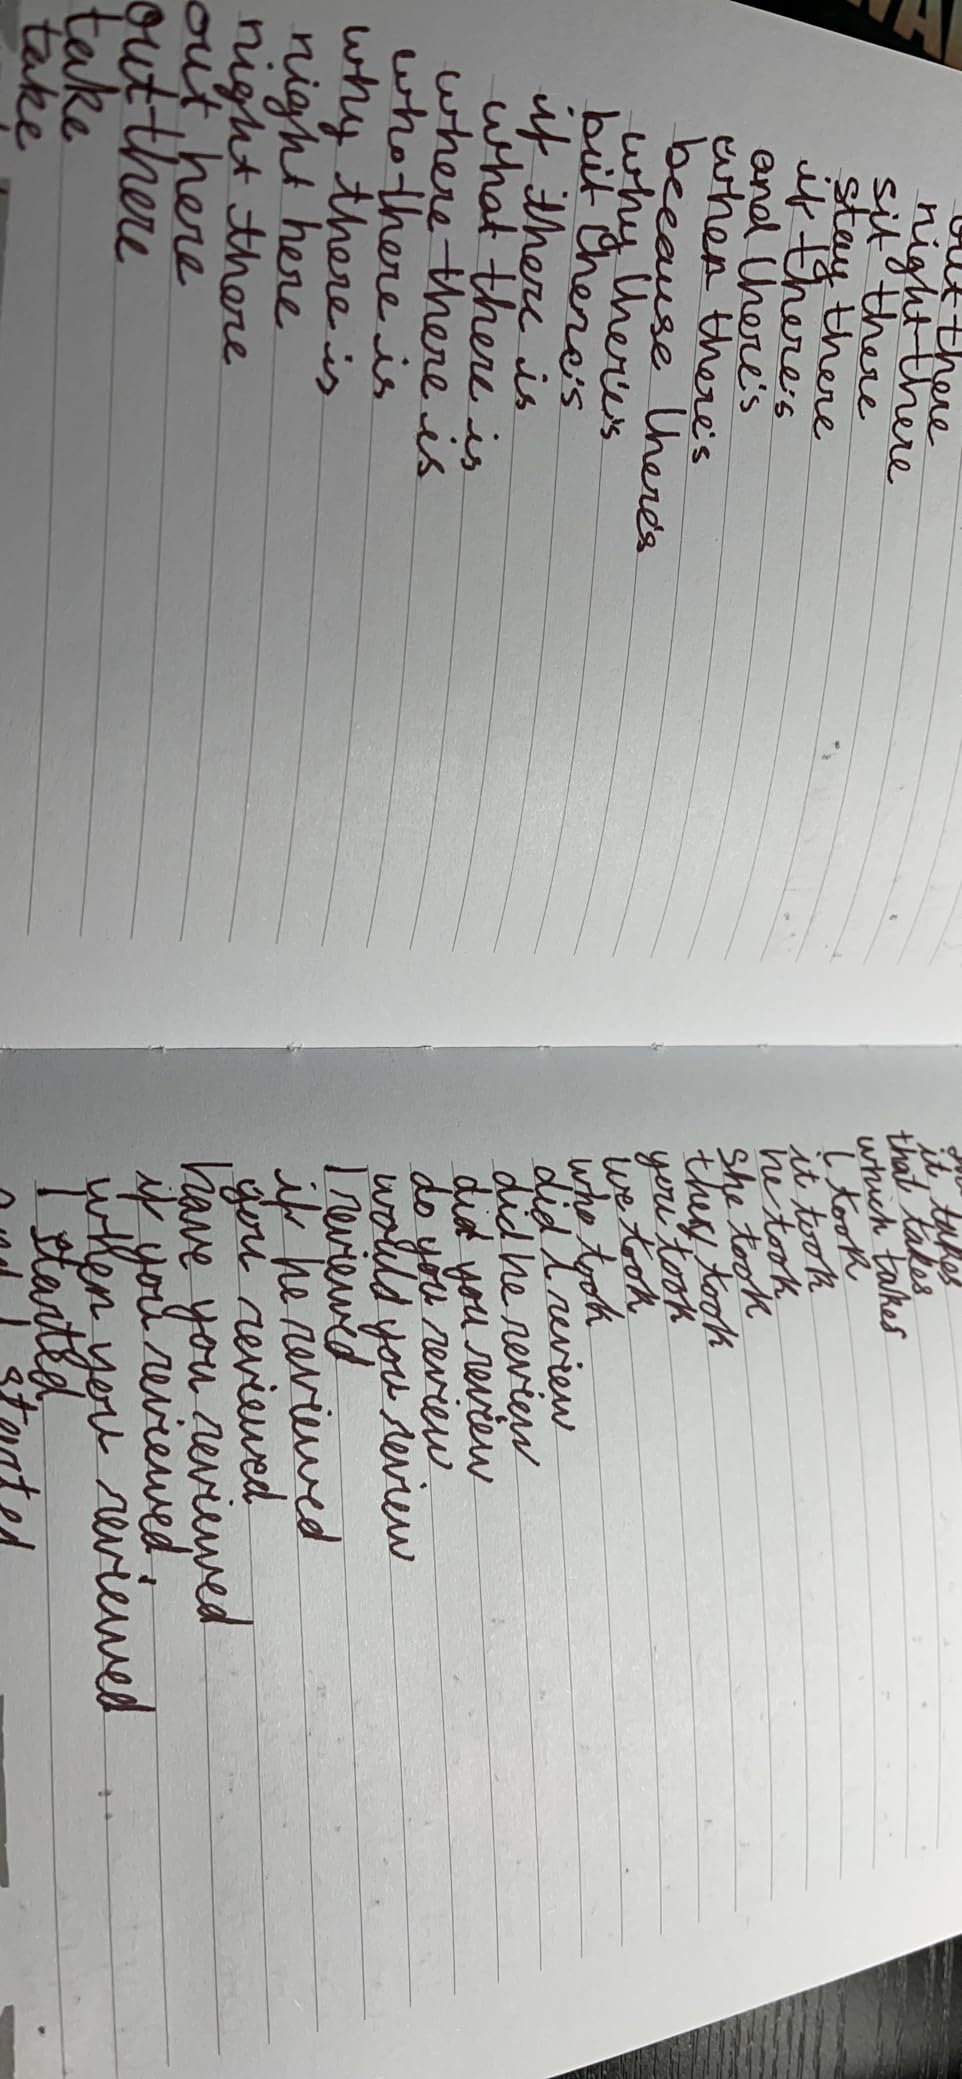 out there
right there
sit there
stay there
if there's
and there's
when there's
because there's
why there's
but there's
if there is
what there is
where there is
who there is
why there is
right here
right there
out here
out there
take
take
it takes
that takes
which takes
I took
it took
he took
she took
they took
you took
we took
who took
did I review
did he review
did you review
do you review
would you review
I reviewed
if he reviewed
you reviewed
have you reviewed
if you reviewed
when you reviewed
I started
and I started